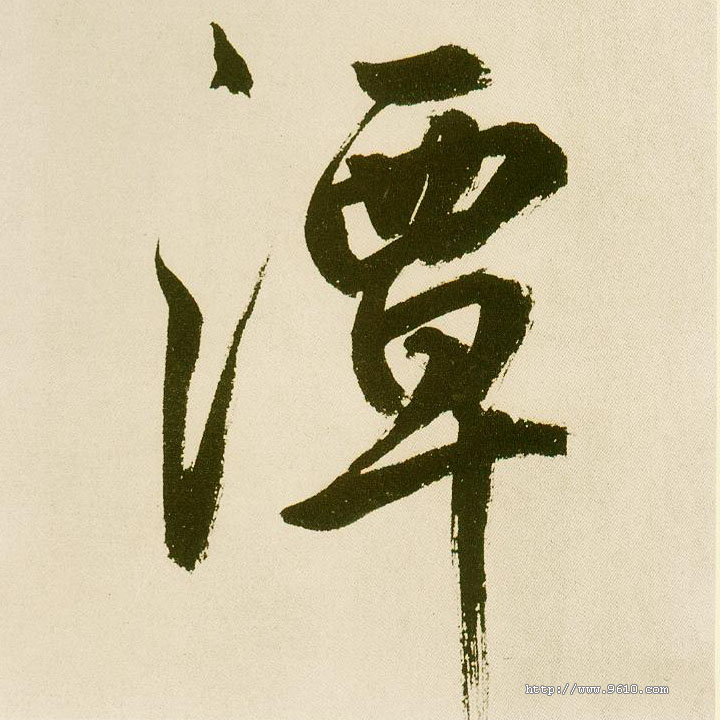 潭
http://www.9610.com